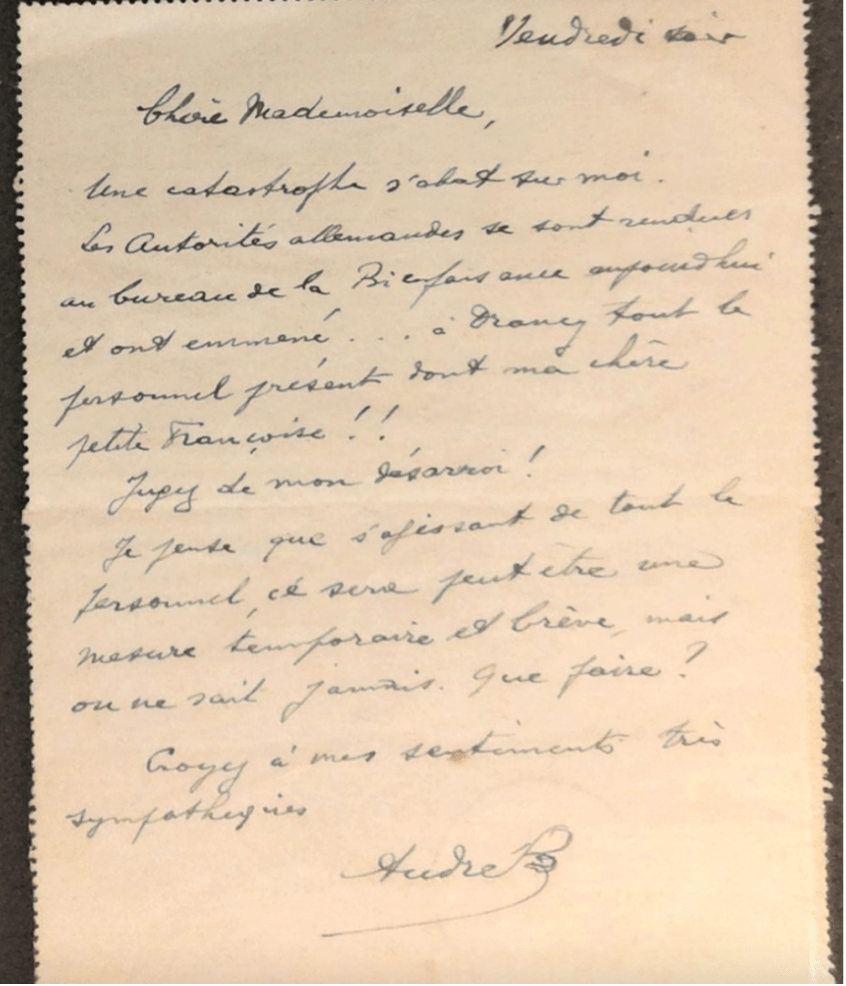 Vendredi soir
Chère Mademoiselle,
Une catastrophe s'abat sur moi.
Les Autorités allemandes se sont rendues
au bureau de la Bienfaisance aujourd'hui
et ont emmené . . . à Drancy tout le
personnel présent dont ma chère
petite Françoise !!
Jugez de mon désarroi !
Je pense que s'agissant de tout le
personnel, ce sera peut être une
mesure temporaire et brève, mais
on ne sait jamais. Que faire ?
Croyez à mes sentiments très
sympathiques
André B